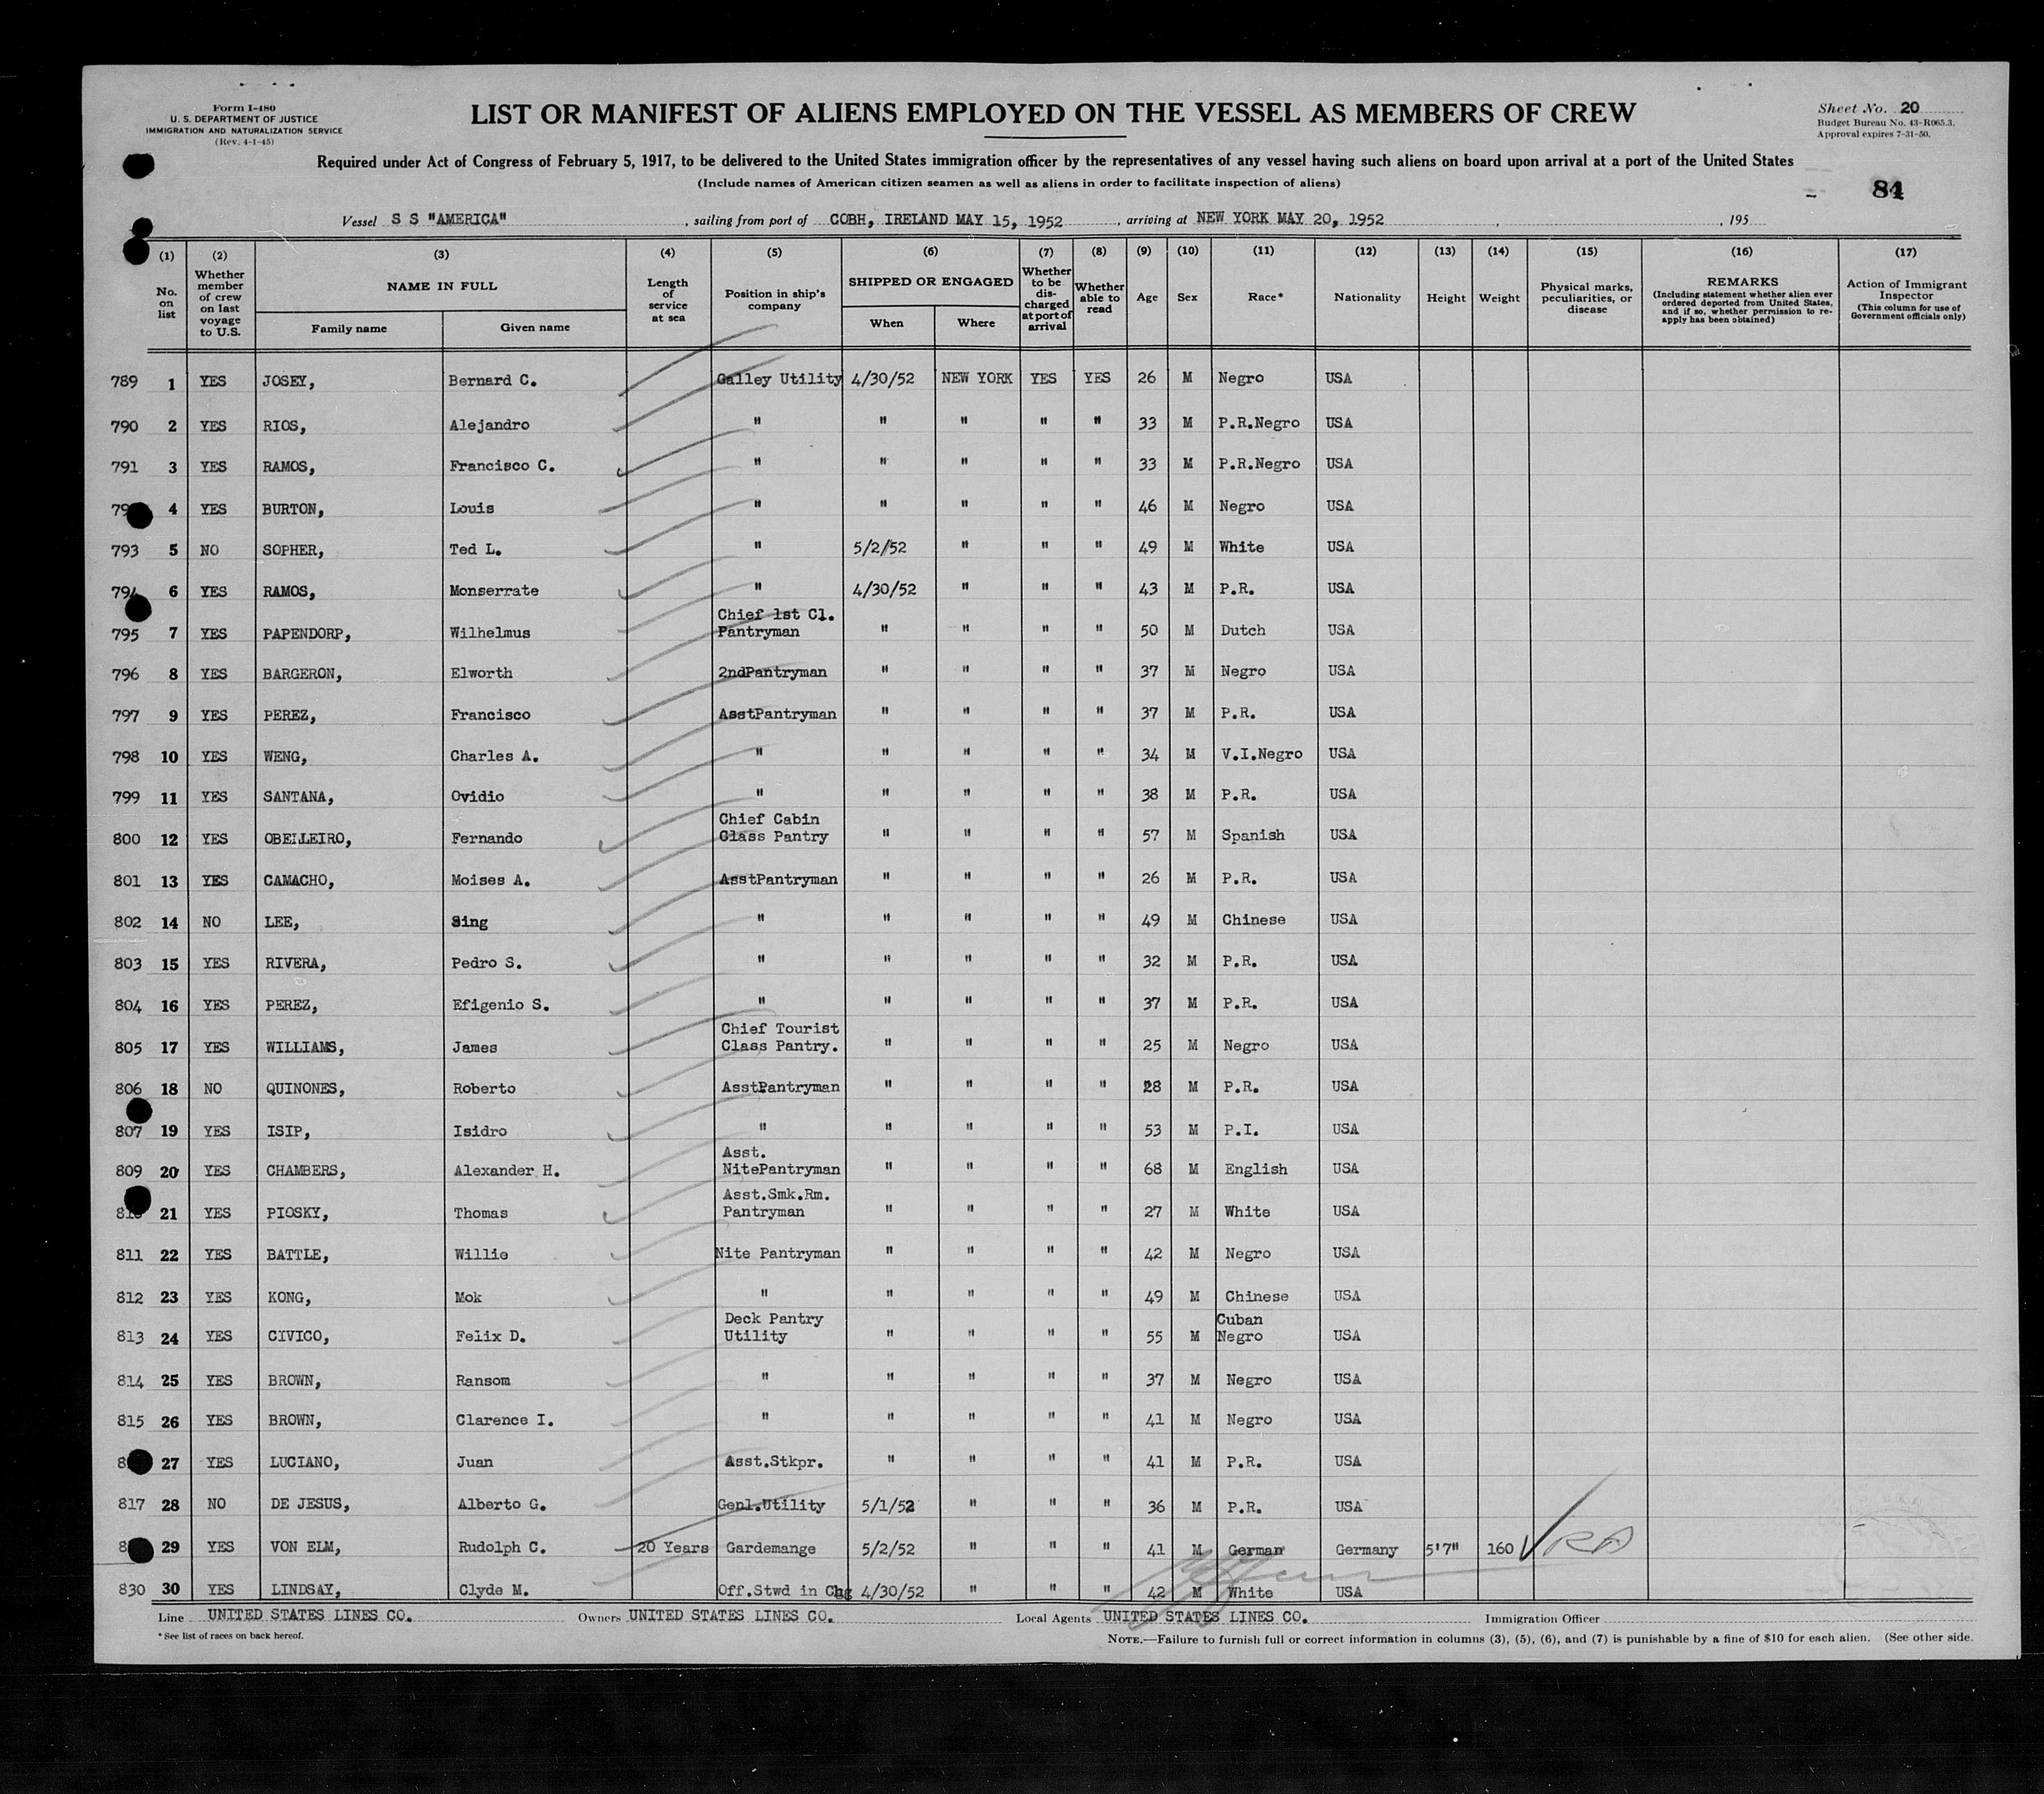 Form I-480
U. S. DEPARTMENT OF JUSTICE
IMMIGRATION AND NATURALIZATION SERVICE
(Rev. 4-1-45)
LIST OR MANIFEST OF ALIENS EMPLOYED ON THE VESSEL AS MEMBERS OF CREW
Sheet No. 20
Budget Bureau No. 43-R065.3.
Approval expires 7-31-50.
Required under Act of Congress of February 5, 1917, to be delivered to the United States immigration officer by the representatives of any vessel having such aliens on board upon arrival at a port of the United States
(Include names of American citizen seamen as well as aliens in order to facilitate inspection of aliens)
84
Vessel S S "AMERICA", sailing from port of COBH, IRELAND MAY 15, 1952, arriving at NEW YORK MAY 20, 1952, 195
(1) (2) (3) (4) (5) (6) (7) (8) (9) (10) (11) (12) (13) (14) (15) (16) (17)
No. on list
Whether member of crew on last voyage to U.S.
NAME IN FULL
Family name
Given name
Length of service at sea
Position in ship's company
SHIPPED OR ENGAGED
When
Where
Whether to be discharged at port of arrival
Whether able to read
Age
Sex
Race*
Nationality
Height
Weight
Physical marks, peculiarities, or disease
REMARKS
(Including statement whether alien ever ordered deported from United States, and if so, whether permission to re-apply has been obtained)
Action of Immigrant Inspector
(This column for use of Government officials only)
789 1 YES JOSEY, Bernard C. Galley Utility 4/30/52 NEW YORK YES YES 26 M Negro USA
790 2 YES RIOS, Alejandro " " " " " 33 M P.R.Negro USA
791 3 YES RAMOS, Francisco C. " " " " " 33 M P.R.Negro USA
4 YES BURTON, Louis " " " " " 46 M Negro USA
793 5 NO SOPHER, Ted L. " 5/2/52 " " " 49 M White USA
794 6 YES RAMOS, Monserrate " 4/30/52 " " " 43 M P.R. USA
795 7 YES PAPENDORP, Wilhelmus Chief 1st Cl. Pantryman " " " " 50 M Dutch USA
796 8 YES BARGERON, Elworth 2ndPantryman " " " " 37 M Negro USA
797 9 YES PEREZ, Francisco AsstPantryman " " " " 37 M P.R. USA
798 10 YES WENG, Charles A. " " " " " 34 M V.I.Negro USA
799 11 YES SANTANA, Ovidio " " " " " 38 M P.R. USA
800 12 YES OBELLEIRO, Fernando Chief Cabin Class Pantry " " " " 57 M Spanish USA
801 13 YES CAMACHO, Moises A. AsstPantryman " " " " 26 M P.R. USA
802 14 NO LEE, Sing " " " " " 49 M Chinese USA
803 15 YES RIVERA, Pedro S. " " " " " 32 M P.R. USA
804 16 YES PEREZ, Efigenio S. " " " " " 37 M P.R. USA
805 17 YES WILLIAMS, James Chief Tourist Class Pantry. " " " " 25 M Negro USA
806 18 NO QUINONES, Roberto AsstPantryman " " " " 28 M P.R. USA
807 19 YES ISIP, Isidro " " " " " 53 M P.I. USA
809 20 YES CHAMBERS, Alexander H. Asst. NitePantryman " " " " 68 M English USA
21 YES PIOSKY, Thomas Asst.Smk.Rm. Pantryman " " " " 27 M White USA
811 22 YES BATTLE, Willie Nite Pantryman " " " " 42 M Negro USA
812 23 YES KONG, Mok " " " " " 49 M Chinese USA
813 24 YES CIVICO, Felix D. Deck Pantry Utility " " " " 55 M Cuban Negro USA
814 25 YES BROWN, Ransom " " " " " 37 M Negro USA
815 26 YES BROWN, Clarence I. " " " " " 41 M Negro USA
27 YES LUCIANO, Juan Asst.Stkpr. " " " " 41 M P.R. USA
817 28 NO DE JESUS, Alberto G. Genl.Utility 5/1/52 " " " 36 M P.R. USA
29 YES VON ELM, Rudolph C. 20 Years Gardemange 5/2/52 " " " 41 M German Germany 5'7" 160
830 30 YES LINDSAY, Clyde M. Off.Stwd in Chg 4/30/52 " " " 42 M White USA
Line UNITED STATES LINES CO. Owners UNITED STATES LINES CO. Local Agents UNITED STATES LINES CO. Immigration Officer
* See list of races on back hereof.
NOTE.—Failure to furnish full or correct information in columns (3), (5), (6), and (7) is punishable by a fine of $10 for each alien. (See other side.